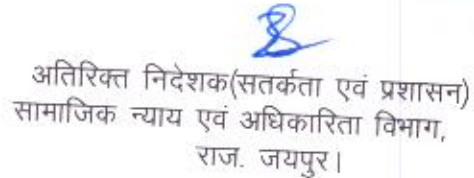 अतिरिक्त निदेशक(सतर्कता एवं प्रशासन)
सामाजिक न्याय एवं अधिकारिता विभाग,
राज. जयपुर।